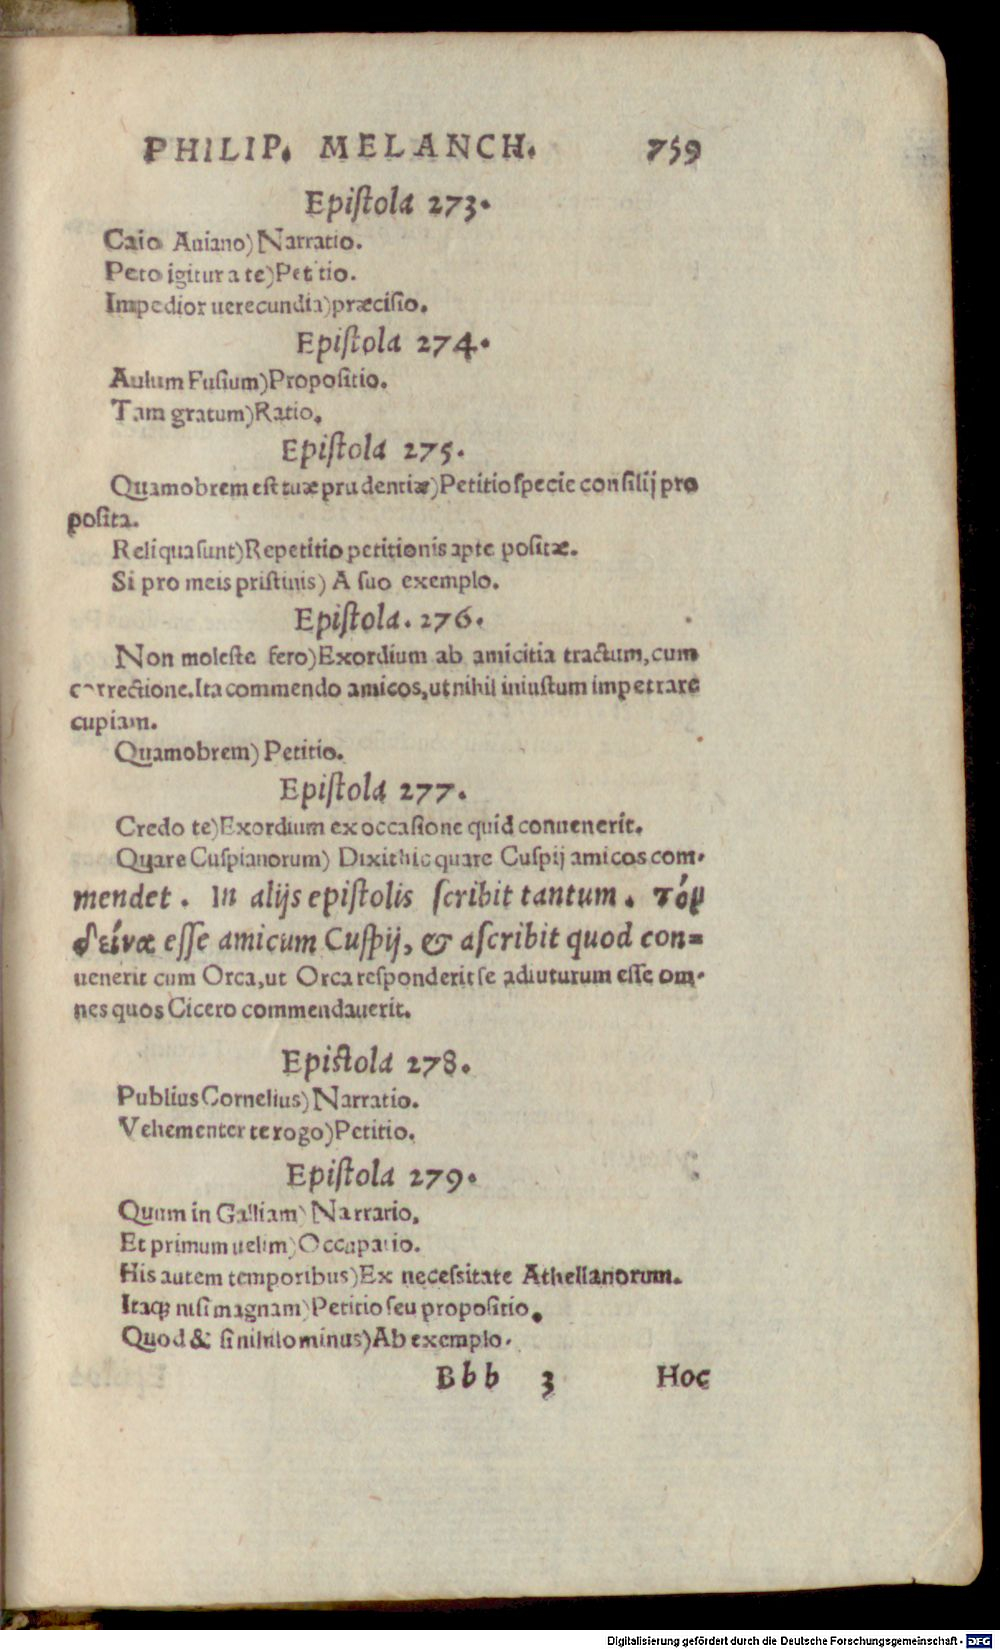 PHILIP. MELANCH. 759
Epiſtola 273.
Caio Auiano) Narratio.
Peto igitur a te) Petitio.
Impedior uerecundia) præciſio.
Epiſtola 274.
Aulum Fuſium) Propoſitio.
Tam gratum) Ratio.
Epiſtola 275.
Quamobrem eſt tuæ prudentiæ) Petitio ſpecie conſilij pro
poſita.
Reliqua ſunt) Repetitio petitionis apte poſitæ.
Si pro meis priſtinis) A ſuo exemplo.
Epiſtola. 276.
Non moleſte fero) Exordium ab amicitia tractum, cum
correctione. Ita commendo amicos, ut nihil iniuſtum impetrare
cupiam.
Quamobrem) Petitio.
Epiſtola 277.
Credo te) Exordium ex occaſione quid conuenerit.
Quare Cuſpianorum) Dixit hic quare Cuſpij amicos com-
mendet. In alijs epiſtolis ſcribit tantum. τὸν
δεῖνα eſſe amicum Cuſpij, & aſcribit quod con=
uenerit cum Orca, ut Orca reſponderit ſe adiuturum eſſe om-
nes quos Cicero commendauerit.
Epiſtola 278.
Publius Cornelius) Narratio.
Vehementer te rogo) Petitio.
Epiſtola 279.
Quum in Galliam) Narratio.
Et primum uelim) Occupatio.
His autem temporibus) Ex neceſsitate Athellanorum.
Itaq; niſi magnam) Petitio ſeu propoſitio.
Quod & ſi nihilominus) Ab exemplo.
Bbb 3 Hoc
Digitalisierung gefördert durch die Deutsche Forschungsgemeinschaft - DFG